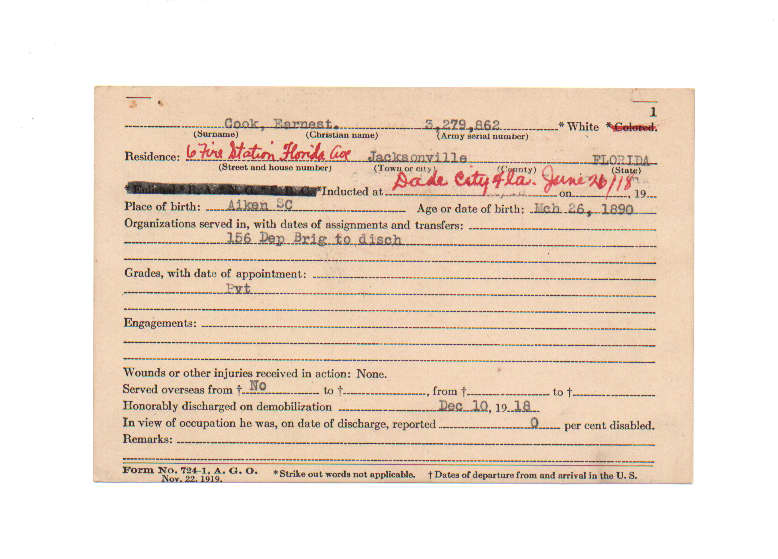 1
Cook, Earnest. 3,279,862 * White * Colored.
(Surname) (Christian name) (Army serial number)
Residence: 6 Fire Station Florida Ave Jacksonville FLORIDA
(Street and house number) (Town or city) (County) (State)
* Inducted at Dade City Fla. on June 26/18 19
Place of birth: Aiken SC Age or date of birth: Mch 26, 1890
Organizations served in, with dates of assignments and transfers:
156 Dep Brig to disch
Grades, with date of appointment:
Pvt
Engagements:
Wounds or other injuries received in action: None.
Served overseas from † No to †, from † to †
Honorably discharged on demobilization Dec 10, 19 18
In view of occupation he was, on date of discharge, reported 0 per cent disabled.
Remarks:
Form No. 724-1, A. G. O. * Strike out words not applicable. † Dates of departure from and arrival in the U. S.
Nov. 22, 1919.